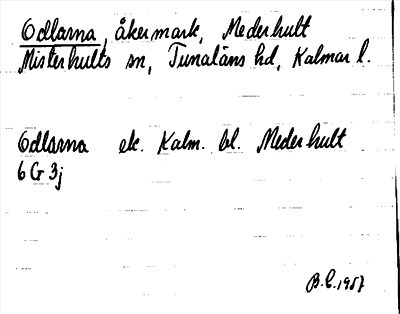 Odlarna, åkermark, Mederhult
Misterhults sn, Tunaläns hd, Kalmar l.
Odlarna ek. Kalm. bl. Mederhult
6 G 3j
B.L. 1957